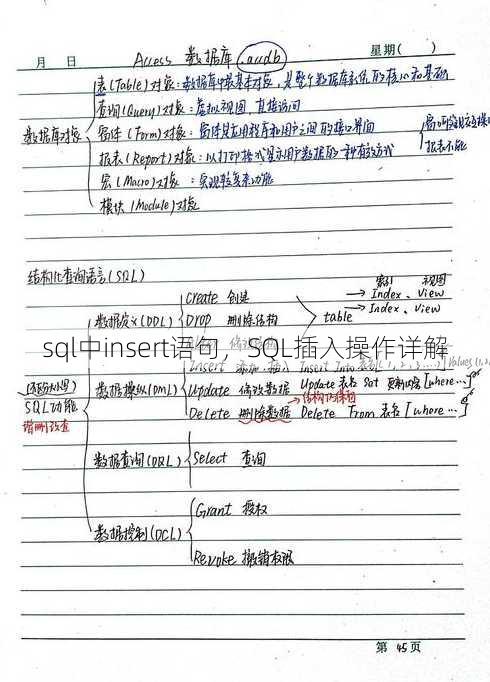 月 日 Access 数据库 .accdb 星期( )
表(Table)对象：数据库中最基本对象，是整个数据库系统的核心和基础
查询(Query)对象：虚拟视图，直接访问
数据库对象 窗体(Form)对象：窗体是应用程序和用户之间的接口界面
报表(Report)对象：以打印格式显示用户数据的一种有效方式
报表不能
宏(Macro)对象：实现较复杂功能
模块(Module)对象
结构化查询语言(SQL)
索引 视图
Create 创建 → Index、View
数据定义(DDL) Drop 删除结构 table → Index、View
sql中insert语句，SQL插入操作详解
Insert 添加、插入 Insert Into 表名(1, 2, 3, …) Values(1,
数据操纵(DML) Update 修改数据 Update 表名 Set 更新内容 [where…]
SQL功能 → 结构仍保留
增删改查 Delete 删除数据 Delete From 表名 [where…]
数据查询(DQL) Select 查询
Grant 授权
数据控制(DCL)
Revoke 撤销权限
第 45 页